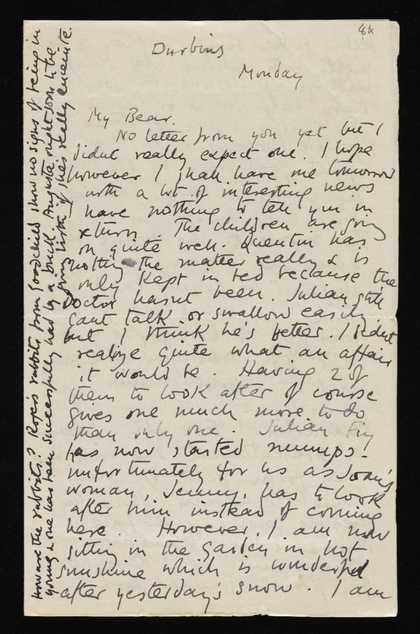 84
Durbins
Monday
My Bear.
No letter from you yet but I
didnt really expect one. I hope
however I shall have one tomorrow
with a lot of interesting news
I have nothing to tell you in
return. The children are going
on quite well. Quentin has
nothing the matter really & is
only kept in bed because the
Doctor hasnt been. Julian still
cant talk or swallow easily
but I think he's better. I didnt
realize quite what an affair
it would be. Having 2 of
them to look after of course
gives one much more to do
than only one. Julian Fry
has now started mumps.
unfortunately for us as Joan's
woman, Jenny, has to look
after him instead of coming
here. However, I am now
sitting in the garden in hot
sunshine which is wonderful
after yesterday's snow. I am
How are the rabbits? Roger's rabbits from Goodchild show no signs of being in
young & one has been successfully had by a buck. Angusta ought soon to be
giving birth if she's really enceinte.